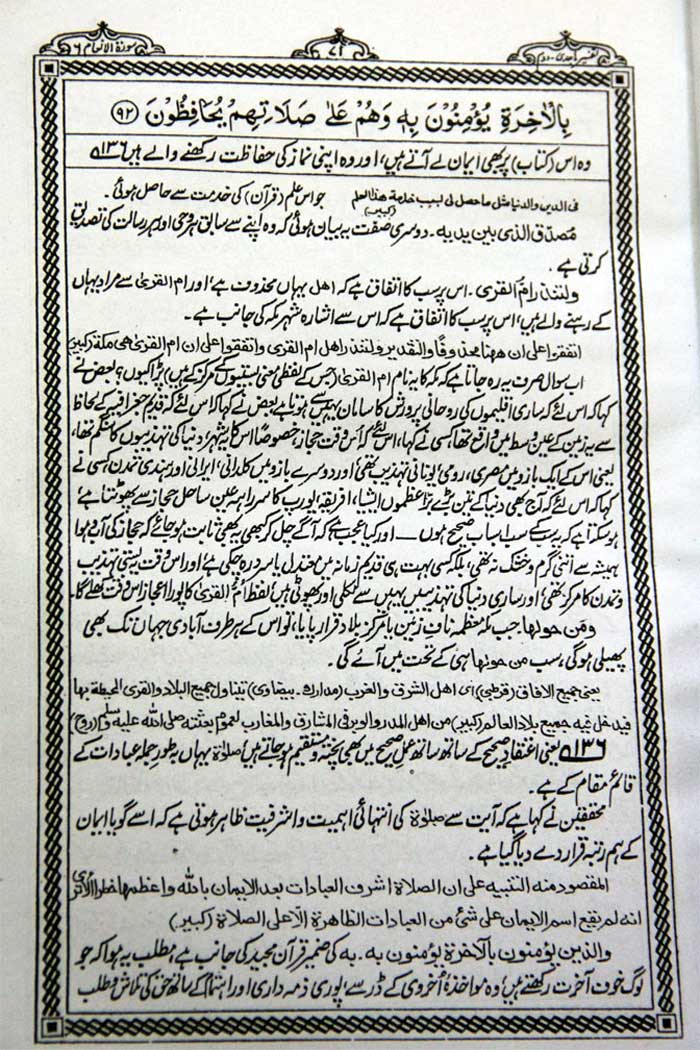 سورة الانعام ٦
٧٢
تفسیر ماجدی - دوم
بِالْاٰخِرَةِ يُؤْمِنُوْنَ بِهٖ وَهُمْ عَلٰى صَلَاتِهِمْ يُحَافِظُوْنَ ﴿٩٢﴾
وہ اس (کتاب) پر بھی ایمان لے آتے ہیں، اور وہ اپنی نماز کی حفاظت رکھنے والے ہیں ۱۳۶
فی الدین والدنیا مثل ما حصل لی بسبب خدمة هذا العلم (کبیر) جو اس علم (قرآن) کی خدمت سے حاصل ہوئی۔
مصدّق الذی بین یدیه۔ دوسری صفت یہ بیان ہوئی کہ وہ اپنے سے سابق ہر وحی اور ہر رسالت کی تصدیق
کرتی ہے۔
ولتنذر امّ القری۔ اس پر سب کا اتفاق ہے کہ اھل یہاں محذوف ہے، اور ام القریٰ سے مراد یہاں
کے رہنے والے ہیں، اس پر سب کا اتفاق ہے کہ اس سے اشارہ شہر مکہ کی جانب ہے۔
اتفقوا علی ان ههنا محذوفًا والتقدیر ولتنذر اهل ام القری واتفقوا علی ان ام القری هی مکة (کبیر)
اب سوال صرف یہ رہ جاتا ہے کہ مکہ کا یہ نام ام القریٰ (جس کے لفظی معنی بستیوں کے مرکز کے ہیں) پڑا کیوں؟ بعض نے
کہا کہ اس لئے کہ ساری اقلیموں کی روحانی پرورش کا سامان یہیں سے ہونا ہے بعض نے کہا کہ اس لئے کہ قدیم جغرافیہ کے لحاظ
سے یہ زمین کے عین وسط میں واقع تھا، کسی نے کہا، اس لئے کہ اس وقت حجاز، خصوصًا اس کا یہ شہر، دنیا کی تہذیبوں کا سنگم تھا،
یعنی اس کے ایک بازو میں مصری، رومی، یونانی تہذیب تھی، اور دوسرے بازو میں کلدانی، ایرانی اور ہندی تمدن کسی نے
کہا کہ اس لئے کہ آج بھی دنیا کے تین بڑے بر اعظموں ایشیا، افریقہ، یورپ کا سر راہہ عین ساحل حجاز سے پھوٹتا ہے،
ہو سکتا ہے کہ یہ سب کے سب اسباب صحیح ہوں — اور کیا عجب ہے کہ آگے چل کر کبھی یہ بھی ثابت ہو جائے کہ حجاز کی آب و ہوا
ہمیشہ سے اتنی گرم و خشک نہ تھی، بلکہ کسی بہت ہی قدیم زمانہ میں معتدل یا سرد رہ چکی ہے، اور اس وقت یہ بستی تہذیب
و تمدن کا مرکز تھی، اور ساری دنیا کی تہذیبیں یہیں سے نکلی اور پھوٹی ہیں، لفظ اُمّ القریٰ کا پورا اعجاز اس وقت کھلے گا۔
ومن حولها۔ جب مکہ معظمہ نافِ زمین یا مرکز بلاد قرار پایا، تو اس کے ہر طرف آبادی جہاں تک بھی
پھیلی ہوگی، سب من حولها ہی کے تحت میں آئے گی۔
یعنی جمیع الافاق (قرطبی) ای اهل الشرق والغرب (مدارک، بیضاوی) یتناول جمیع البلاد والقری المحیطة بها
فیدخل فیه جمیع بلاد العالم (کبیر) من اهل المدر والوبر فی المشارق والمغارب لعموم بعثته صلی اللہ علیه وسلم (روح)
۱۳۶ یعنی اعتقادِ صحیح کے ساتھ ساتھ عملِ صحیح میں بھی پختہ و مستقیم ہو جاتے ہیں، صلوٰۃ یہاں بہ طور جملہ عبادات کے
قائم مقام کے ہے۔
محققین نے کہا ہے کہ آیت سے صلوٰۃ کی انتہائی اہمیت و اشرفیت ظاہر ہوتی ہے کہ اسے گویا ایمان
کے ہم رتبہ قرار دے دیا گیا ہے۔
المقصود منه التنبیه علی ان الصلاة اشرف العبادات بعد الایمان باللہ واعظمها خطرا الا تری
انه لم یقع اسم الایمان علی شئ من العبادات الظاهرة الّا علی الصلاة (کبیر)
والذین یؤمنون بالآخرة یؤمنون به۔ بہ کی ضمیر قرآن مجید کی جانب ہے، مطلب یہ ہوا کہ جو
لوگ خوف آخرت رکھتے ہیں، وہ مواخذۂ اُخروی کے ڈر سے، پوری ذمہ داری اور اہتمام کے ساتھ حق کی تلاش و طلب